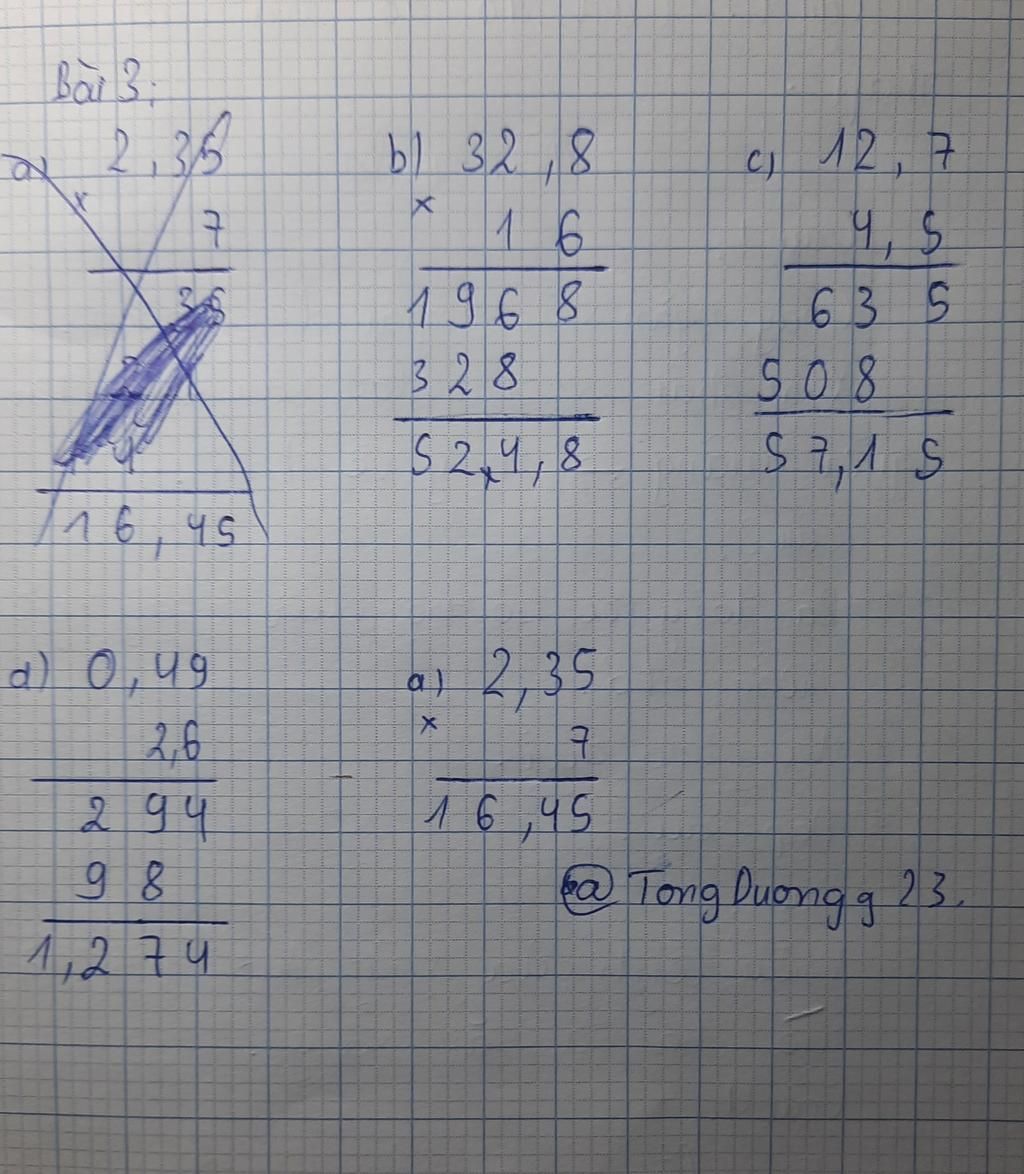 Bài 3:
a) 2,35
x
7
35
16,45
b) 32,8
x
16
1968
328
52,4,8
c) 12,7
4,5
635
508
57,15
d) 0,49
2,6
294
98
1,274
a) 2,35
x
7
16,45
@ Tong Duongg 23.